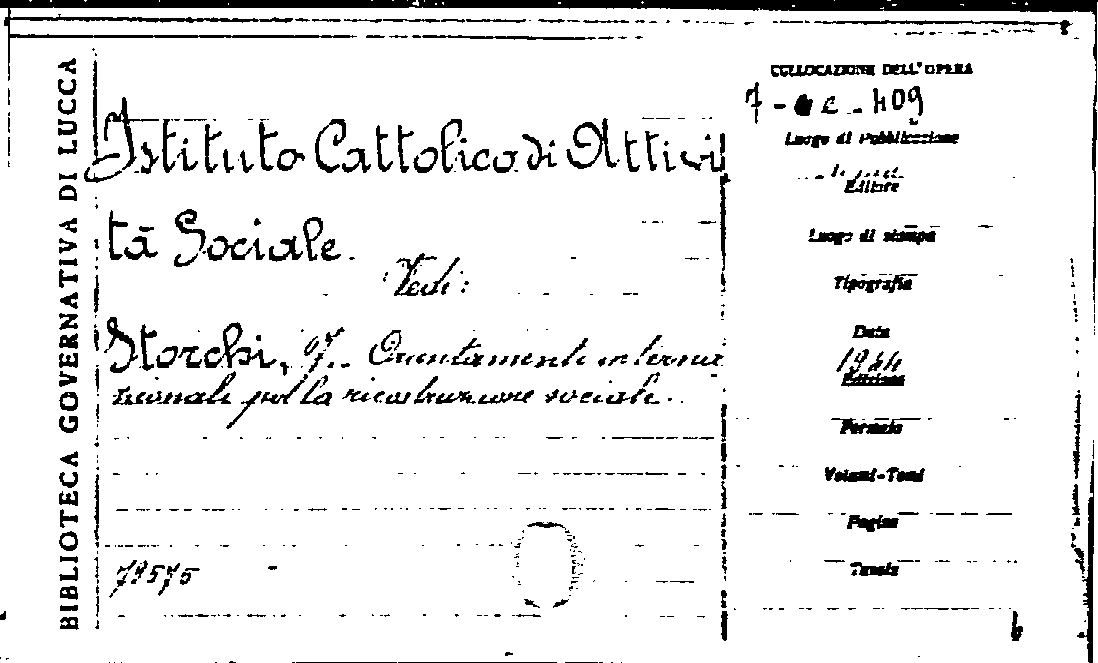 BIBLIOTECA GOVERNATIVA DI LUCCA
Istituto Cattolico di Attivi
tà Sociale.
Vedi:
Storchi, F.. Orientamenti interna
zionali per la ricostruzione sociale.
79575
COLLOCAZIONE DELL'OPERA
7 - - 409
Luogo di Pubblicazione
Editore
Luogo di stampa
Tipografia
Data
1944
Edizione
Formato
Volumi-Tomi
Pagine
Tavole